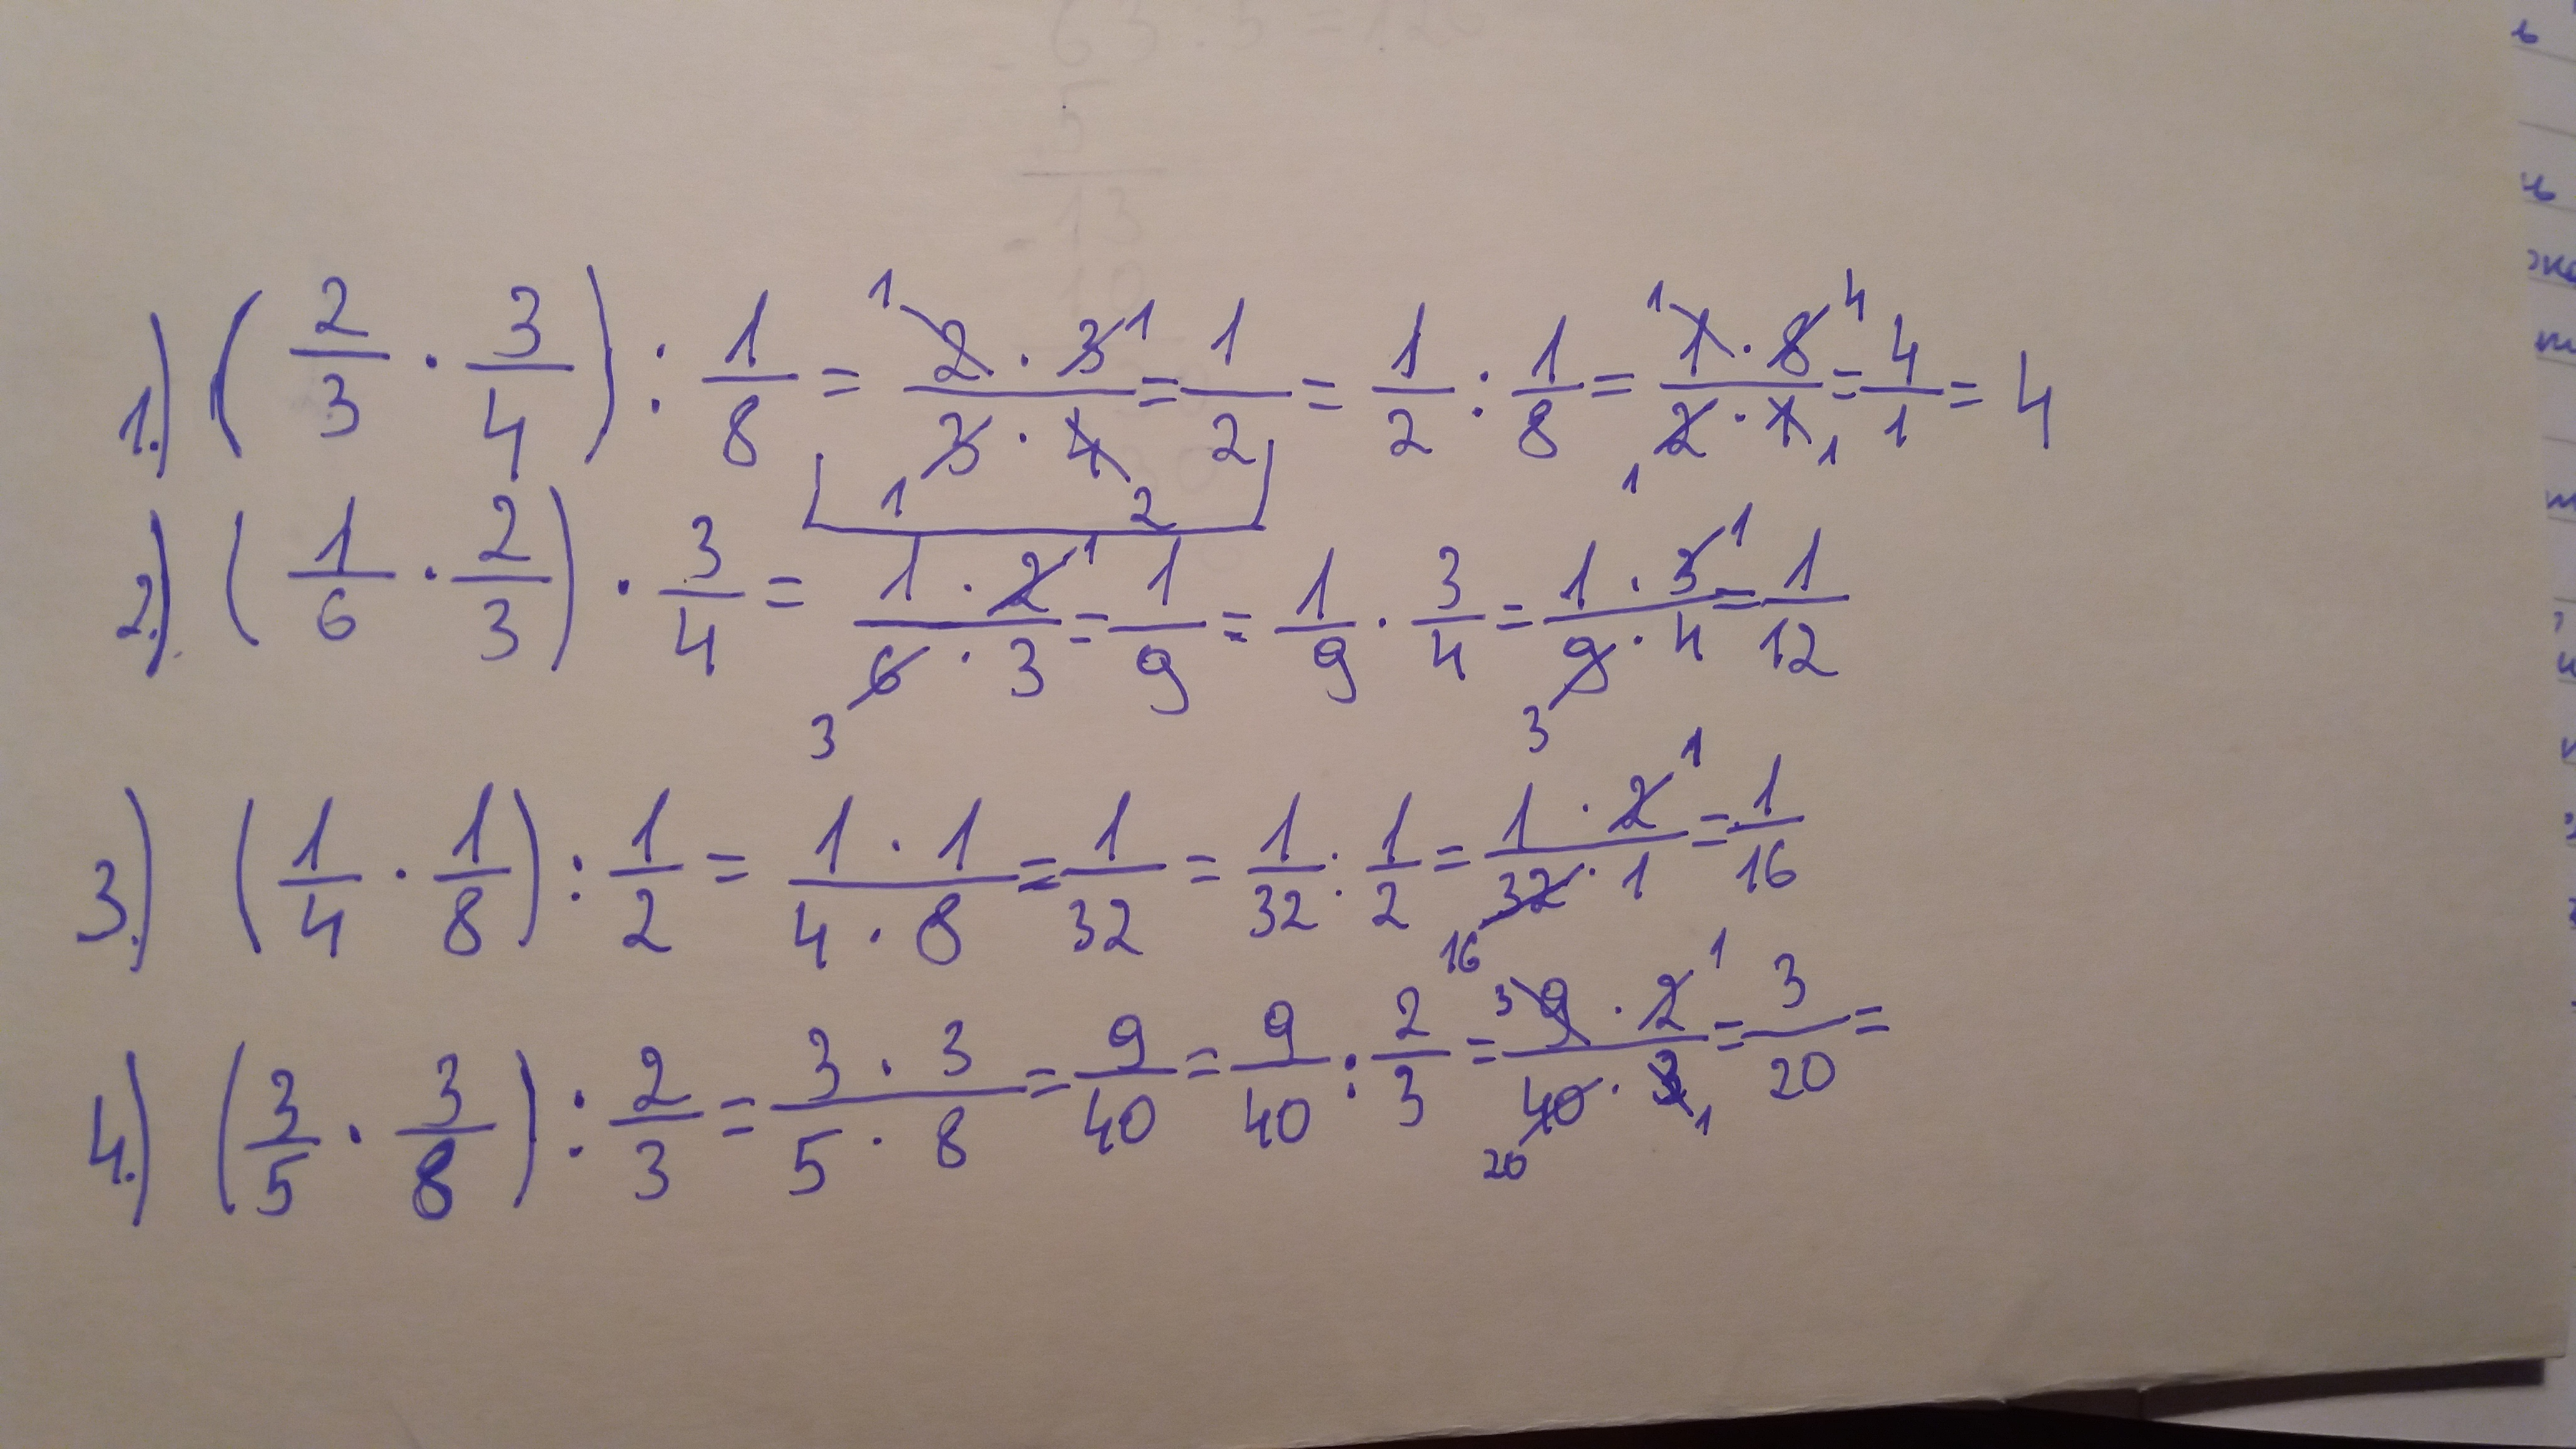 1.) (2/3 · 3/4) : 1/8 = 2 · 3/3 · 4 = 1/2 = 1/2 : 1/8 = 1 · 8/2 · 1 = 4/1 = 4
2.) (1/6 · 2/3) · 3/4 = 1 · 2/6 · 3 = 1/9 = 1/9 · 3/4 = 1 · 3/9 · 4 = 1/12
3.) (1/4 · 1/8) : 1/2 = 1 · 1/4 · 8 = 1/32 = 1/32 : 1/2 = 1 · 2/32 · 1 = 1/16
4.) (3/5 · 3/8) : 2/3 = 3 · 3/5 · 8 = 9/40 = 9/40 : 2/3 = 9 · 2/40 · 3 = 3/20 =